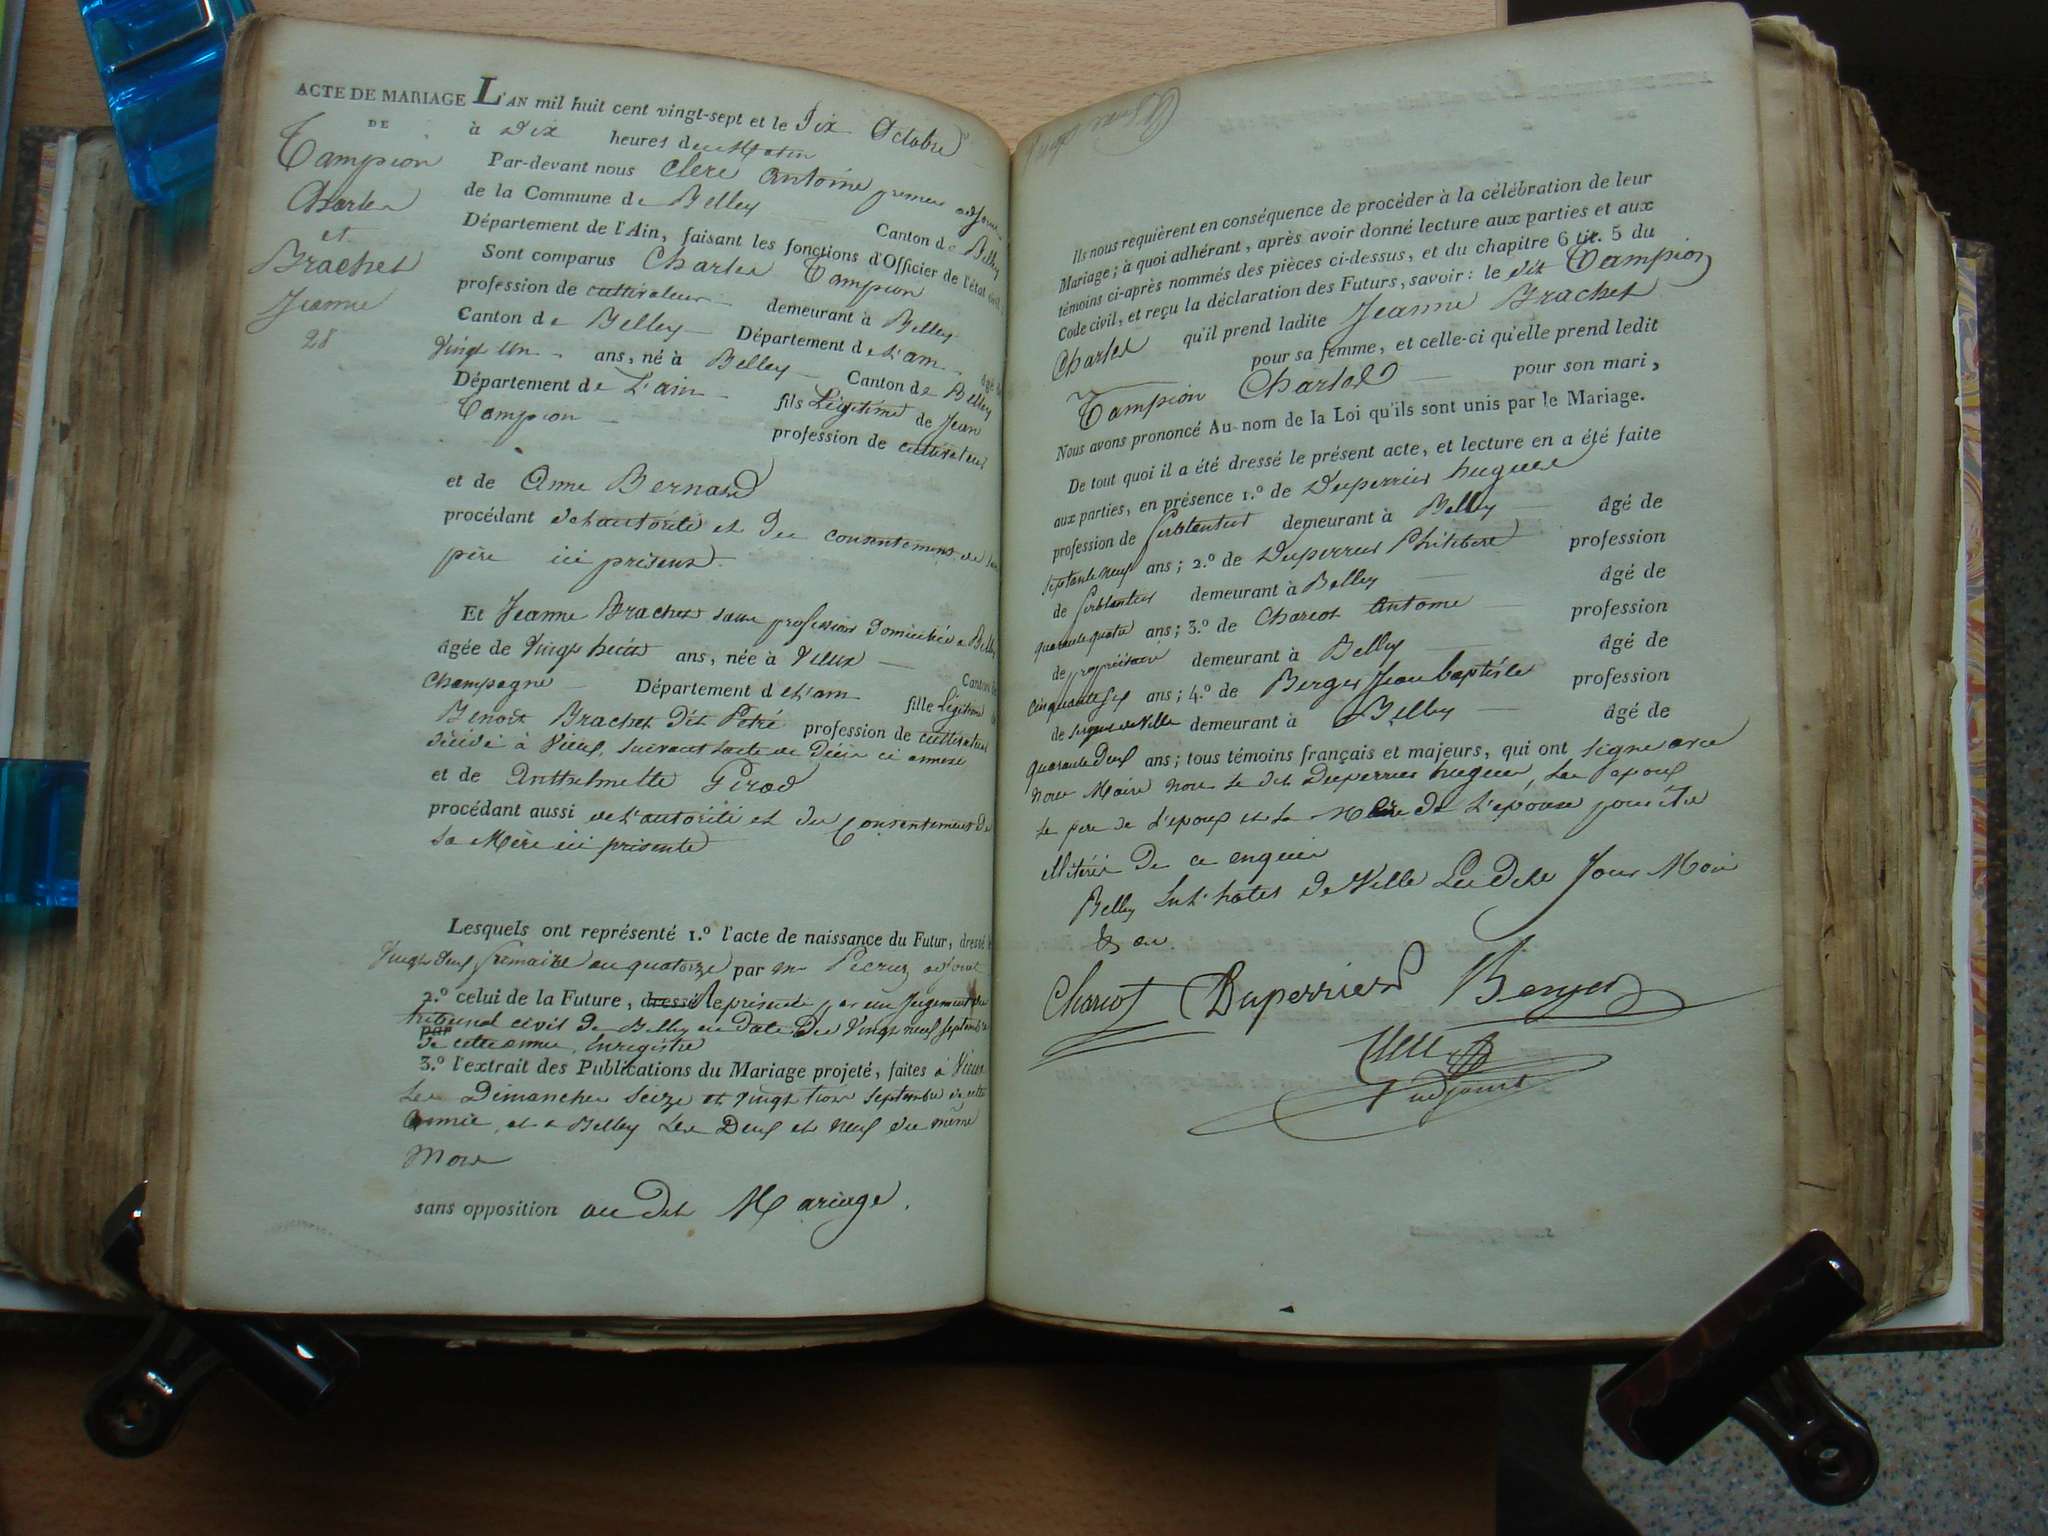 ACTE DE MARIAGE
DE
Tampion
Charles
et
Brachet
Jeanne
28
L'AN mil huit cent vingt-sept et le Dix Octobre
à Dix heures du Matin
Par-devant nous Clerc Antoine premier adjoint
de la Commune de Belley Canton de Belley
Département de l'Ain, faisant les fonctions d'Officier de l'état civil
Sont comparus Charles Tampion
profession de cultivateur demeurant à Belley
Canton de Belley Département de L'ain âgé de
Vingt Un ans, né à Belley Canton de Belley
Département de L'ain fils Légitime de Jean
Tampion profession de cultivateur
et de Anne Bernard
procédant de l'autorité et du consentement de son
père ici présent.
Et Jeanne Brachet sans profession Domiciliée a Belley
âgée de Vingt huit ans, née à Vieux Canton de
Champagne Département de L'ain fille Légitime de
Benoit Brachet dit Petré profession de cultivateur
décédé à Vieux, suivant l'acte de Décès ci annexé
et de Anthelmette Pirod
procédant aussi de l'autorité et du Consentement de
sa Mère ici présente
Lesquels ont représenté 1.º l'acte de naissance du Futur, dressé le
Vingt deux frimaire an quatorze par mr adjoint
2.º celui de la Future, dressé le présenté par un Jugement du
par tribunal civil de Belley en date du Vingt neuf septembre
de cette année, Enregistré
3.º l'extrait des Publications du Mariage projeté, faites à Vieux
Les Dimanches Seize et vingt trois septembre de cette
année, et a Belley Les Deux et neuf du même
Mois
sans opposition au dit Mariage.
Ils nous requièrent en conséquence de procéder à la célébration de leur
Mariage; à quoi adhérant, après avoir donné lecture aux parties et aux
témoins ci-après nommés des pièces ci-dessus, et du chapitre 6 tit. 5 du
Code civil, et reçu la déclaration des Futurs, savoir: le dit Tampion
Charles qu'il prend ladite Jeanne Brachet
pour sa femme, et celle-ci qu'elle prend ledit
Tampion Charles pour son mari,
Nous avons prononcé Au nom de la Loi qu'ils sont unis par le Mariage.
De tout quoi il a été dressé le présent acte, et lecture en a été faite
aux parties, en présence 1.º de Duperrier hugues
profession de ferblantier demeurant à Belley âgé de
septante neuf ans; 2.º de Duperrier Philibert profession
de ferblantier demeurant à Belley âgé de
quarante quatre ans; 3.º de Charcot Antoine profession
de propriétaire demeurant à Belley âgé de
Cinquante six ans; 4.º de Berger Jean baptiste profession
de sergent de Ville demeurant à Belley âgé de
quarante deux ans; tous témoins français et majeurs, qui ont signé avec
nous Maire non le dit Duperrier hugues, les epoux
Le pere de l'epoux et la Mère de L'epouse pour être
illitérés de ce enquis
Belley En L'hotel de Ville Les dits Jour Mois
& an.
Charcot Duperrier Berger
Clerc
adjoint